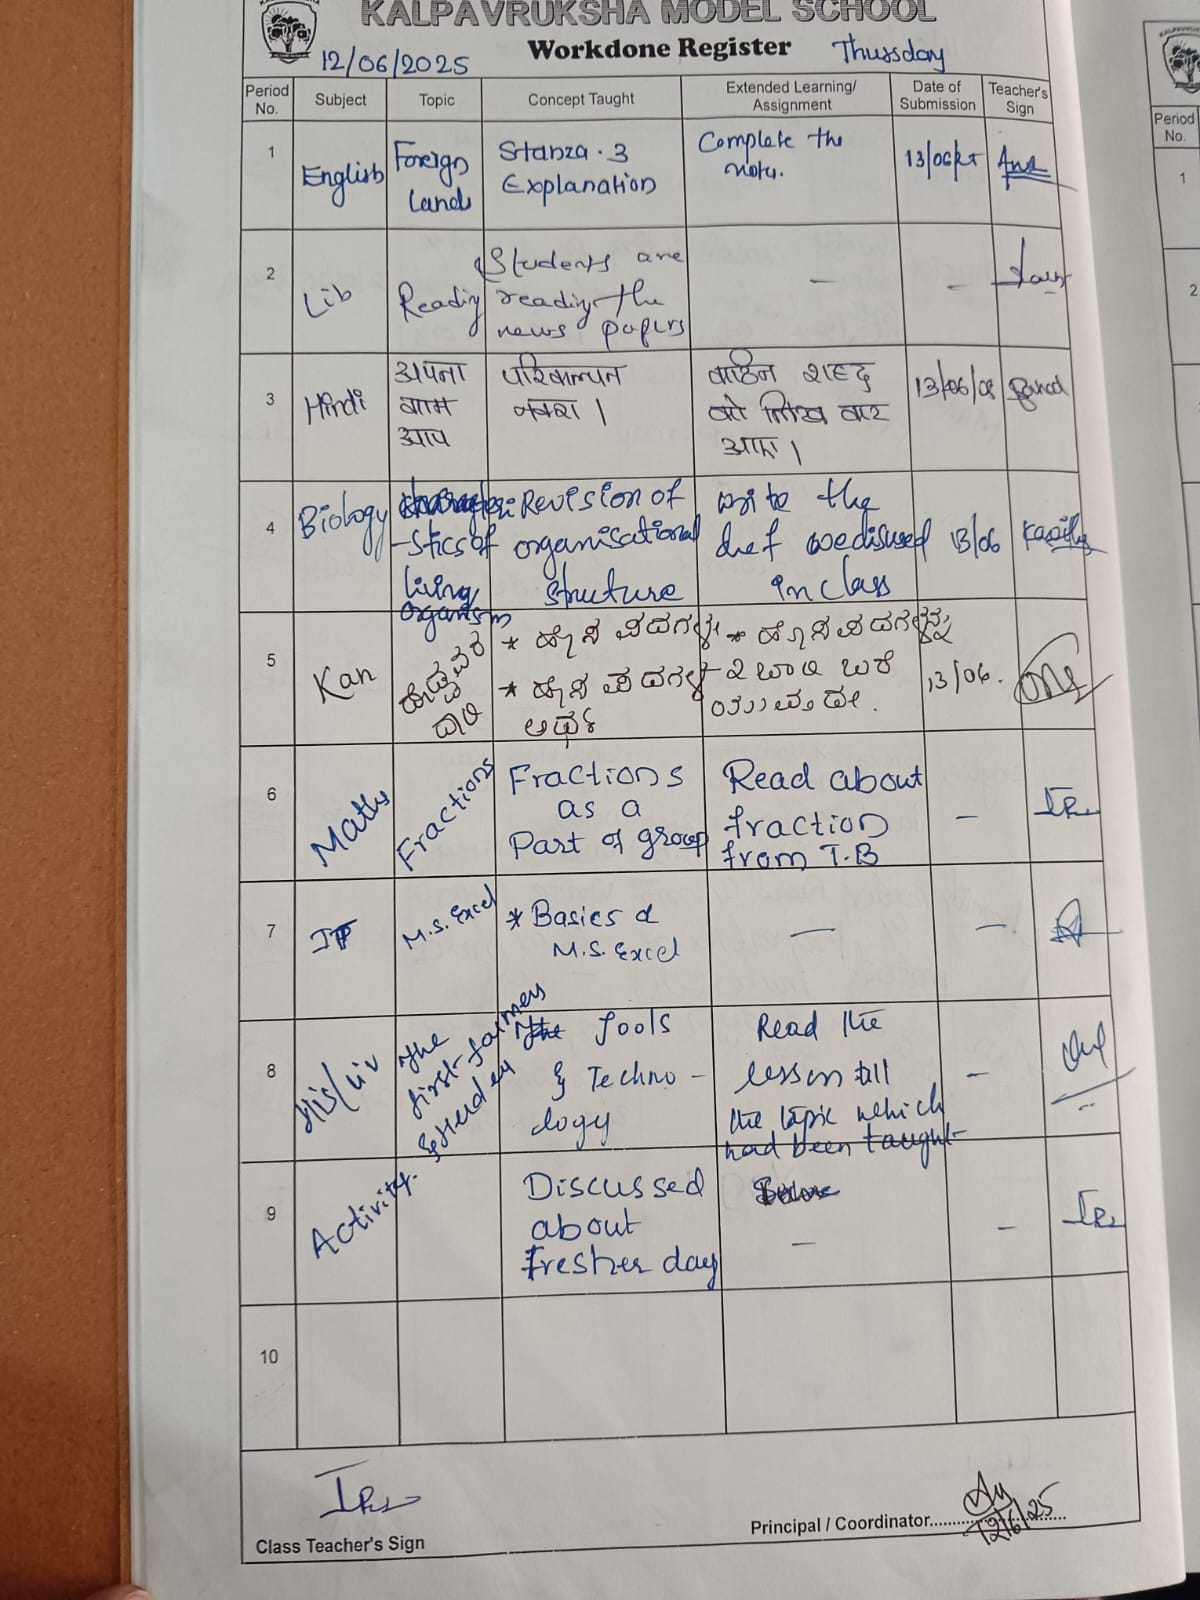 KALPAVRUKSHA MODEL SCHOOL
Workdone Register
12/06/2025
Thursday
Period No.
Subject
Topic
Concept Taught
Extended Learning/ Assignment
Date of Submission
Teacher's Sign
1
English
Foreign
Land
Stanza . 3
Explanation
Complete the
notes.
2
Lib
Reading
Students are
reading the
news papers
-
-
3
Hindi
अपना
काम
आप
परिकल्पन
नक्शा ।
कठिन शब्द
को लिख कर
आए।
4
Biology
-stics of
living
organism
Revision of
organisational
structure
write the
in class
13/06
5
Kan
* ಹೊಸ ಪದಗಳು
* ಹೊಸ ಪದಗಳ
ಅರ್ಥ
* ಹೊಸ ಪದಗಳನ್ನು
೨ ಬಾರಿ ಬರೆ
ಯುವುದು.
13/06.
6
Maths
Fractions
Fractions
as a
Part of group
Read about
fraction
from T.B
-
7
M.S. Excel
* Basics of
M.S. Excel
-
-
8
His/Civ
The
first-farmers
& Herders
Tools
& Techno -
logy
Read the
lesson till
the topic which
had been taught
-
9
Activity.
Discussed
about
fresher day
-
-
10
Class Teacher's Sign
Principal / Coordinator
12/6/25
Period No.
1
2